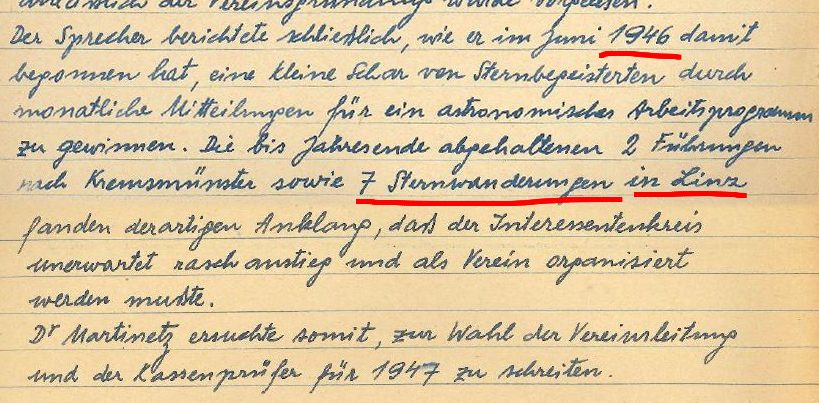 anlässlich der Vereinsgründung wurde vorgelesen.
Der Sprecher berichtete schließlich, wie er im Juni 1946 damit
begonnen hat, eine kleine Schar von Sternbegeisterten durch
monatliche Mitteilungen für ein astronomisches Arbeitsprogramm
zu gewinnen. Die bis Jahresende abgehaltenen 2 Führungen
nach Kremsmünster sowie 7 Sternwanderungen in Linz
fanden derartigen Anklang, daß der Interessentenkreis
unerwartet rasch anstieg und als Verein organisiert
werden mußte.
Dr Martinetz ersuchte somit, zur Wahl der Vereinsleitung
und der Kassenprüfer für 1947 zu schreiten.